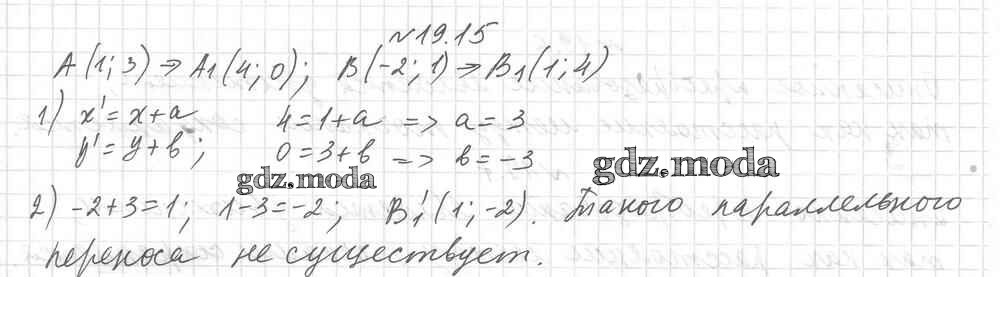 №19.15
A(1;3) ⇒ A1(4;0); B(-2;1) ⇒ B1(1;4)
1) x'=x+a 4=1+a => a=3
y'=y+в; 0=3+в => в=-3
gdz.moda gdz.moda
2) -2+3=1; 1-3=-2; B1'(1;-2). Такого параллельного
переноса не существует.